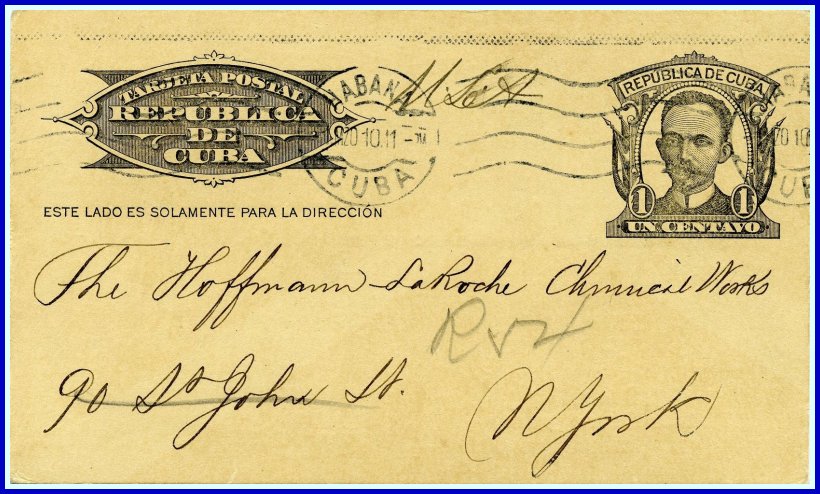 TARJETA POSTAL
REPUBLICA
DE
CUBA
HABANA
20·10·11-
CUBA
U.S.A
REPUBLICA DE CUBA
1 1
UN CENTAVO
ESTE LADO ES SOLAMENTE PARA LA DIRECCIÓN
The Hoffmann-LaRoche Chemical Works
90 St John St.
N York